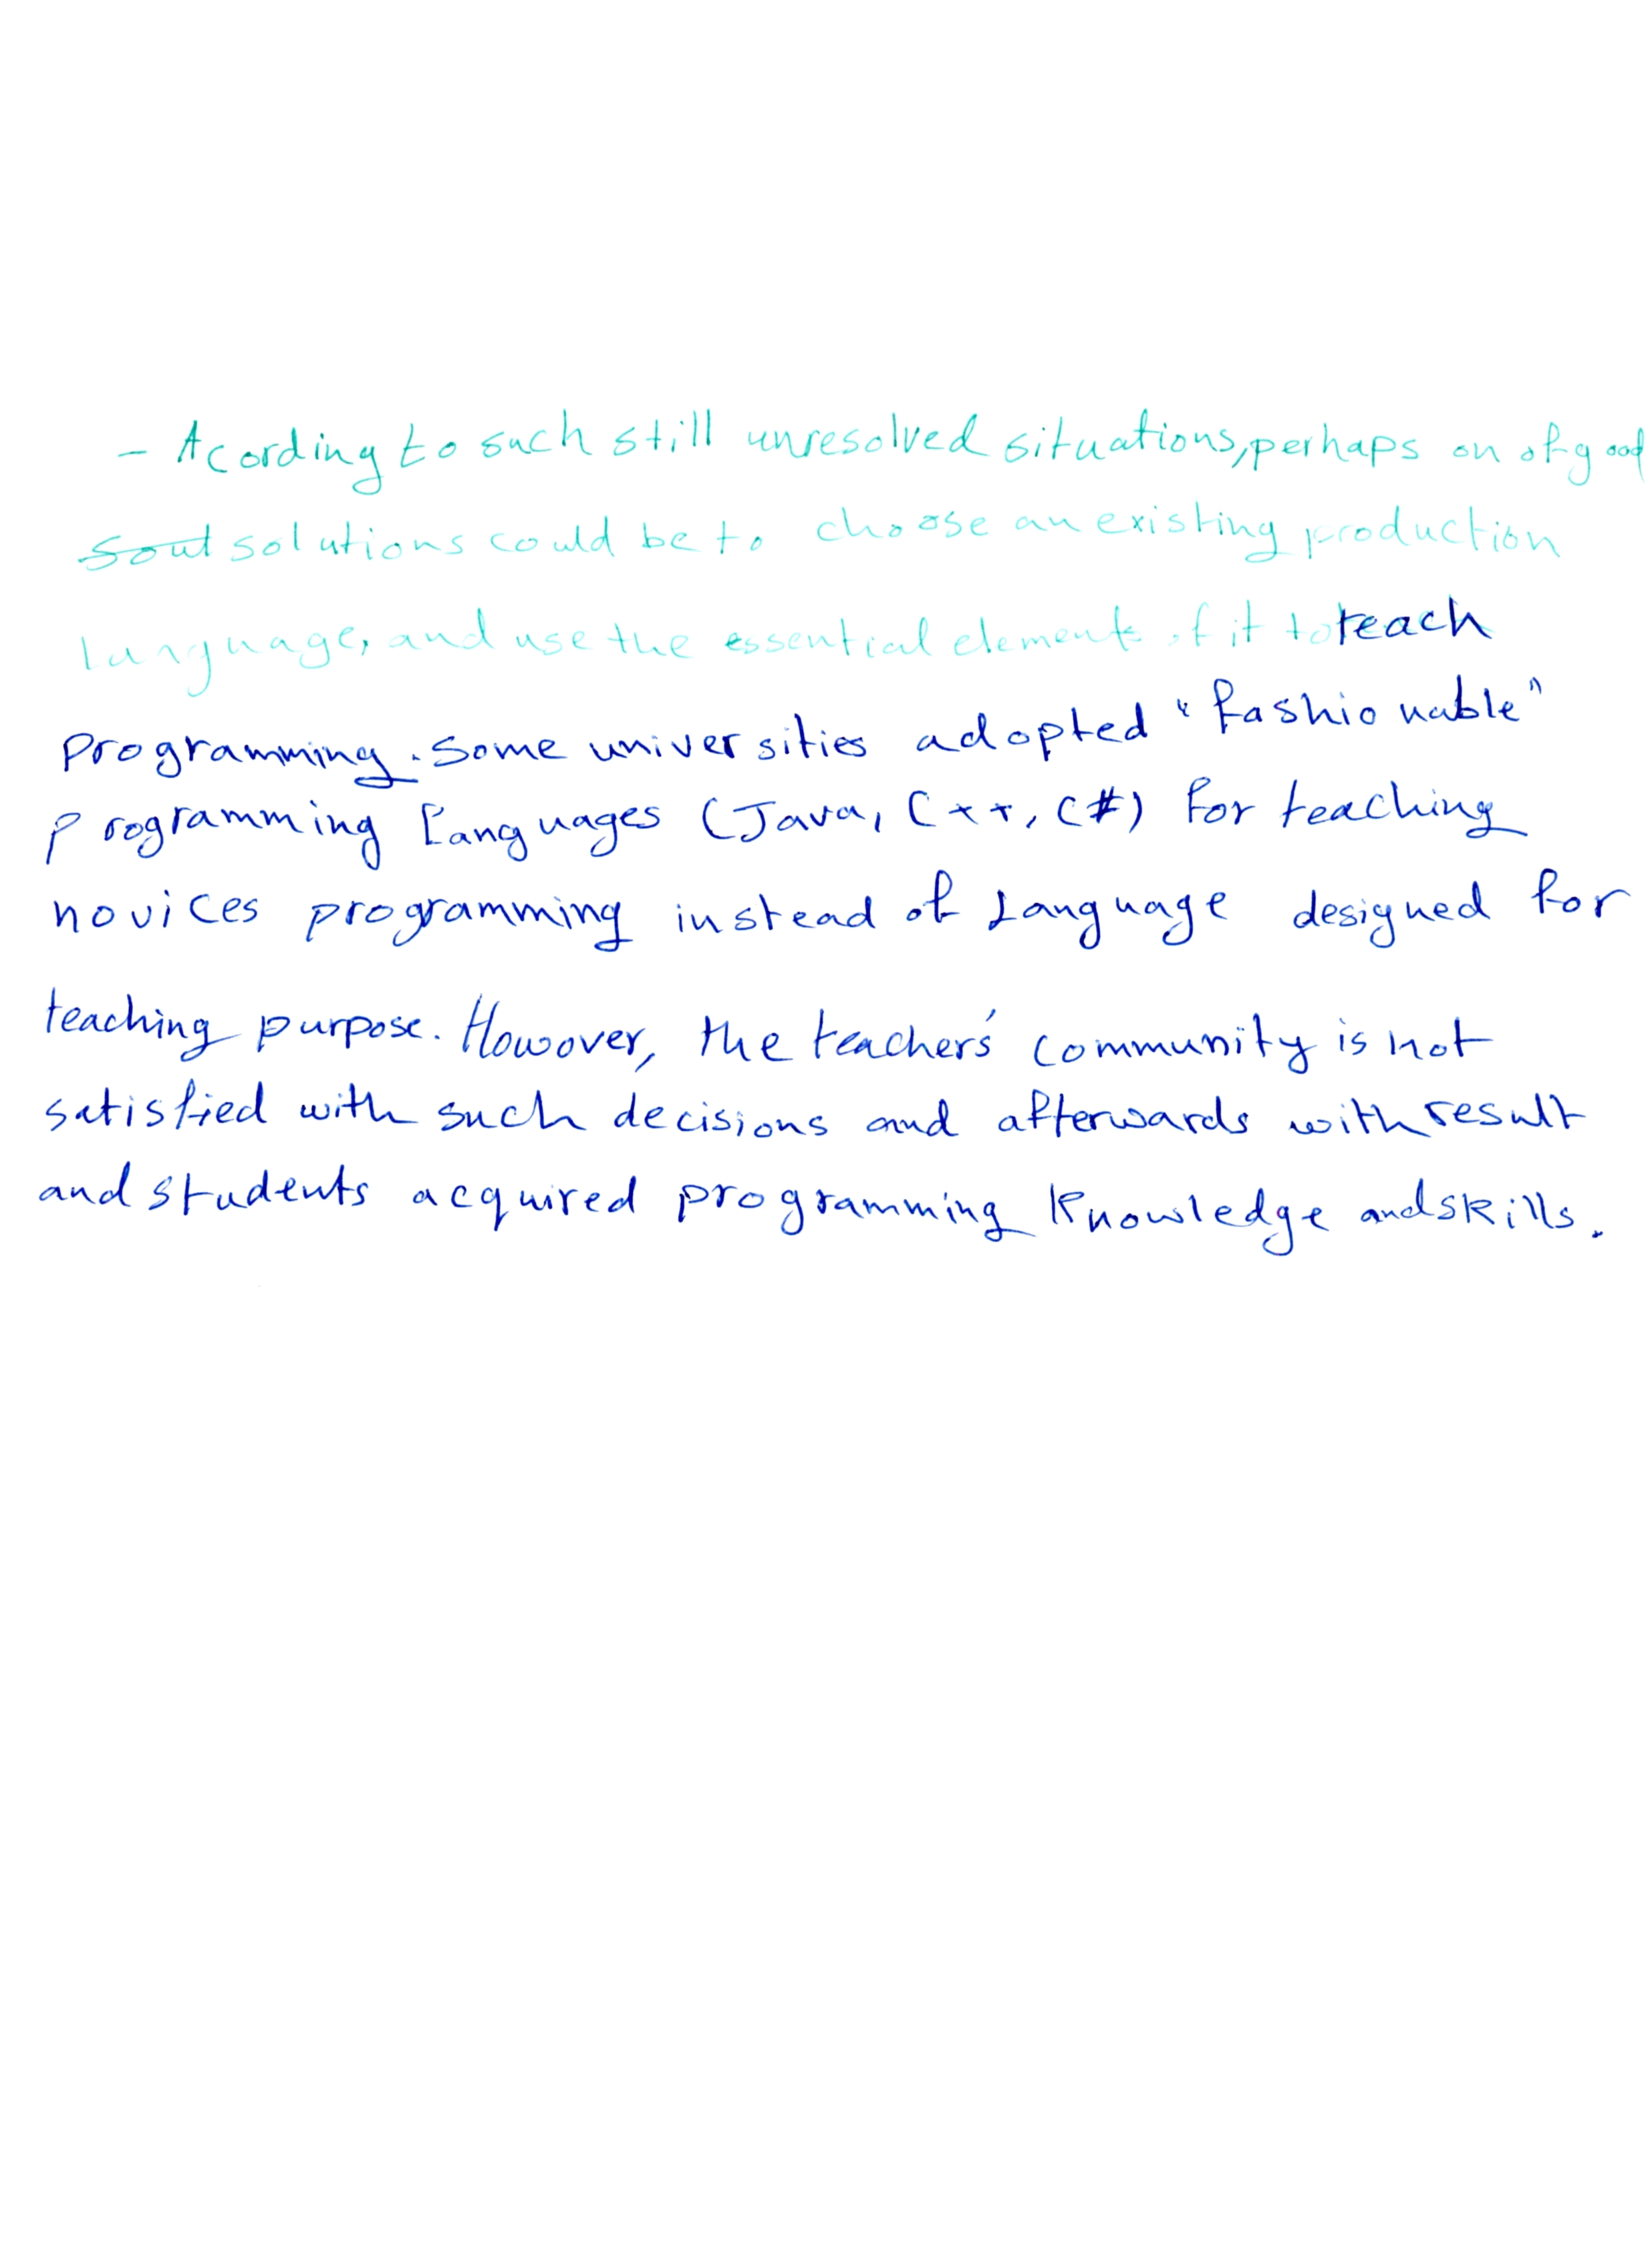 - Acording to such still unresolved situations, perhaps on of good
sout solutions could be to choose an existing production
language, and use the essential elements of it to teach
programming. Some universities adopted "fashionable"
programming Languages (Java, C++, C#) for teaching
novices programming instead of Language designed for
teaching purpose. Howover, the teacher's community is not
satisfied with such decisions and afterwards with result
and students acquired programming knowledge and skills.